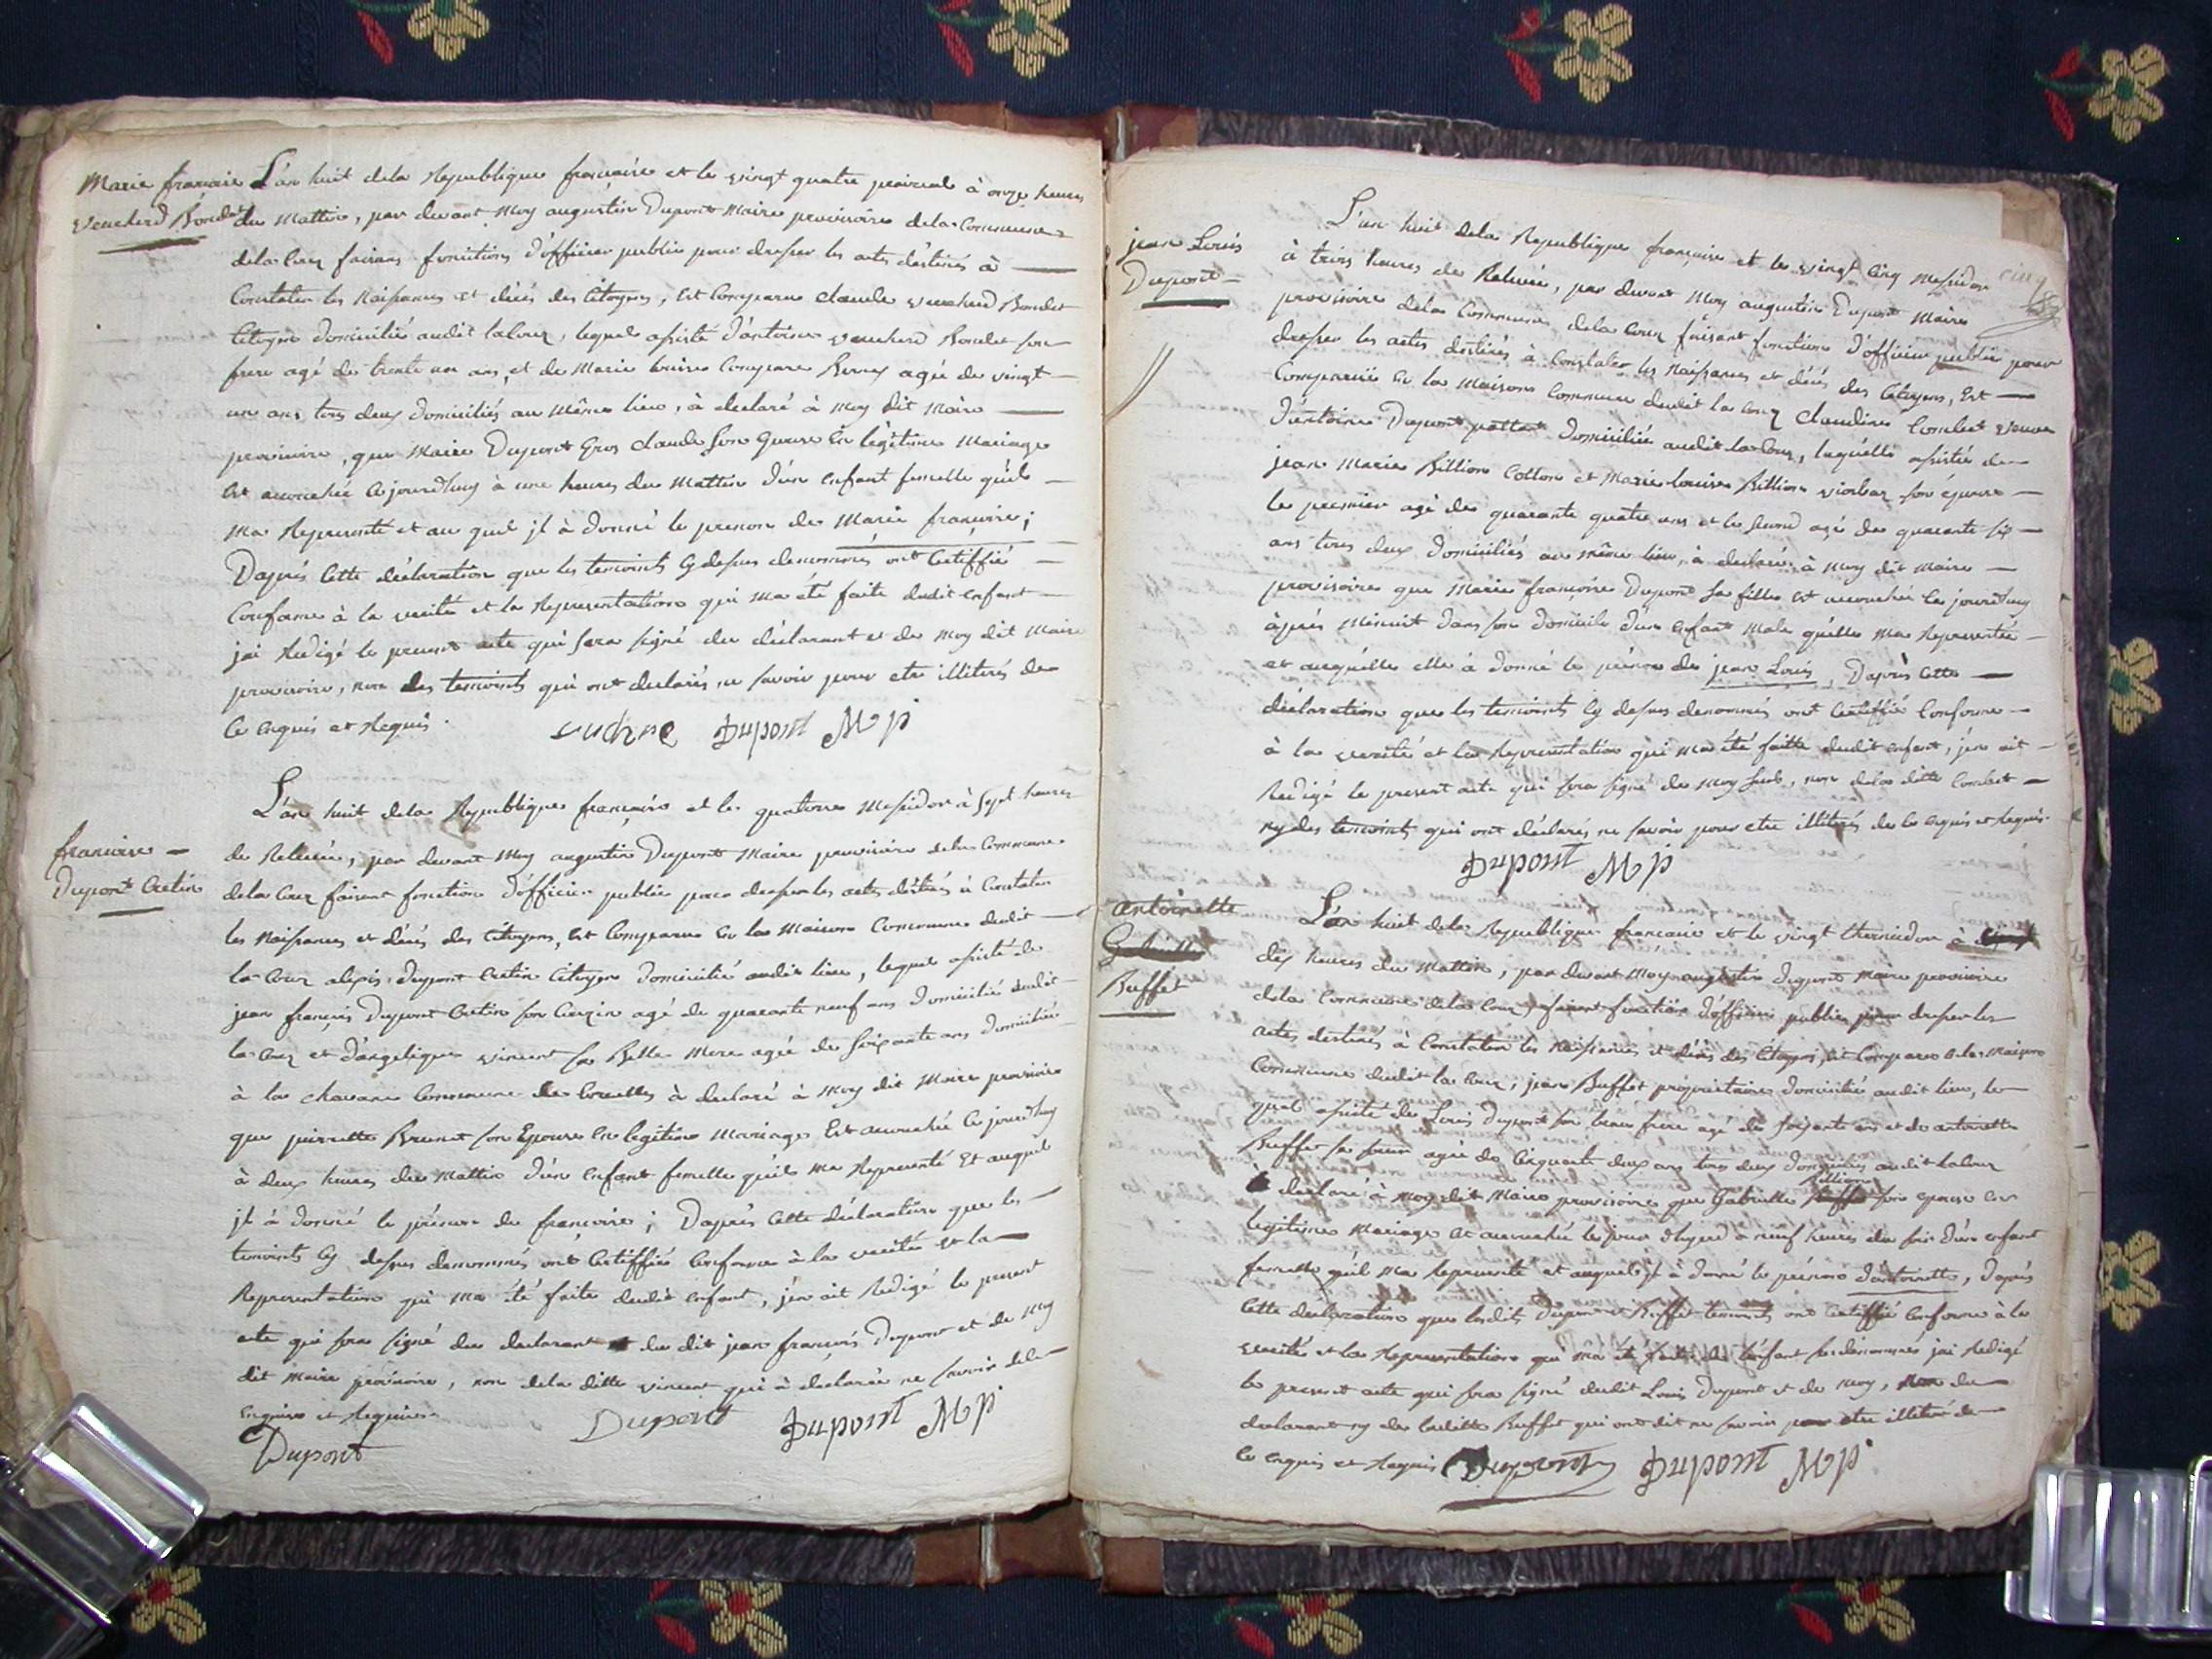 Marie françoise
Veucherd Bondet
L'an huit dela Republique françaire et le vingt quatre praireal à onze heures
du Mattin, par devant Moy augustin Dupont Maire provisoire dela Commune
dela Cour faisant fonctions d'officier public pour dresser les actes déstinés à
Constater les Naissances et décés des Citoyens, est Comparu claude veucherd Bondet
Citoyen domicilié audit laCour, lequel assisté d'antoine veucherd Bondet son
frere agé de trente un ans, et de Marie louise Compare agée de vingt
un ans, tous deux domiciliés au même lieu, à declaré à Moy dit Maire
provisoire, que Marie Dupont Gros claude son épouse en légitime Mariage
est accouchée Cejourdhuy à une heures du Mattin d'un enfant femelle qu'il
Ma Representé et au quel jl à donné le prenon de Marie françoise;
Daprés Cette déclaration que les temoints Cy dessus denommés ont Certiffié
Conforme à la verité et la Representation qui Ma été faite dudit enfant
jai Redigé le present acte qui sera signé du déclarant et de Moy dit Maire
provisoire, non des temoints qui ont declarés ne savoir pour etre illiterés de
Ce enquis et Requis.
Dupont M p
françoise
Dupont Cretin
L'an huit dela Republique françaire et le quatorze Messidor à Sept heures
de Relevée, par devant Moy augustin Dupont Maire provisoire dela Commune
dela Cour faisant fonctions d'officier public pour dresser les actes déstinés à Constater
les Naissances et décés des Citoyens, est Comparu en la Maison Commune dudit
la Cour alexis Dupont Cretin Citoyen domicilié audit lieu, lequel assisté de
jean françois Dupont Cretin son Couzin agé de quarante neuf ans domicilié dudit
la Cour et d'angelique vincent sa Belle Mere agée de soixante ans domiciliée
à la chavane Commune de à declaré à Moy dit Maire provisoire
que pierrette Brunet son Epouse en legitime Mariage Est accouchée Ce jourdhuy
à deux heures du Mattin d'un enfant femelle qu'il Ma Representé Et auquel
jl à donné le prénon de françoise; Daprés Cette déclaration que les
temoints Cy dessus denommés ont Certiffiés Conforme à la verité et la
Representation qui Ma été faite dudit enfant, j'en ait Redigé le present
acte qui sera signé du declarant du dit jean françois Dupont et de Moy
dit Maire provisoire, non dela ditte vincent qui à declarée ne savoir dela
enquise et Requise.
Dupont Dupont M p
Dupont
jean Louis
Dupont
L'an huit dela Republique française et le vingt Cinq Messidor
à trois heures de Relevée, par devant Moy augustin Dupont Maire
provisoire dela Commune dela Cour faisant fonctions d'officier public pour
dresser les actes déstinés à Constater les Naissances et décés des Citoyens, Est
Comparuë en la Maison Commune dudit la Cour claudine Combet veuve
d'antoine Dupont domiciliée audit la Cour, laquelle assistée de
jean Marie Billion Cotton et Marie louise Billion son épouse
le premier agé de quarante quatre ans et la second agée de quarante six
ans tous deux domiciliés au même lieu, à declaré à Moy dit Maire
provisoire que Marie françoise Dupont sa fille est accouchée Ce jourdhuy
àprés Minuit dans son domicile d'un enfant Male qu'elle Ma Representée
et auquelle elle à donné le prénon de jean Louis, Daprès Cette
déclaration que les temoints Cy dessus denommés ont Certiffié Conforme
à la verité et la Representation qui Ma été faitte dudit enfant, j'en ait
Redigé le present acte qui sera signé de Moy seul, non dela ditte Combet
ny des temoints qui ont déclarés ne savoir pour etre illiterés de Ce enquis et Requis.
Dupont M p
antoinette
Gabrielle
Buffet
L'an huit dela Republique française et le vingt thermidor à
dix heures du Mattin, par devant Moy augustin Dupont Maire provisoire
dela Commune dela Cour, faisant fonction d'officier public pour dresser les
actes destinés à Constater les Naissances et décés des Citoyens, est Comparu en la Maison
Commune dudit la Cour, jean Buffet propriétaire domicilié audit lieu, le
quel assisté de Louis Dupont son beau frere agé de soixante ans et de antoinette
Buffet sa soeur agée de Cinquante deux ans tous deux domiciliés audit la Cour
à declaré à Moy dit Maire provisoire que Gabrielle Billion son epouse en
legitime Mariage est accouchée le jour dhyerd à neuf heures du soir d'un enfant
femelle qu'il Ma Representé et auquel jl à donné le prénon d'antoinette, d'aprés
Cette declaration que lesdits Dupont et Buffet temoints ont Certiffié Conforme à la
verité et la Representation qui Ma été faite de l'enfant susdenommés jai Redigé
le present acte qui sera signé dudit Louis Dupont et de Moy, non du
declarant ny de laditte Buffet qui ont dit ne savoir pour etre illiteré de
Ce enquis et Requis Dupont Dupont M p